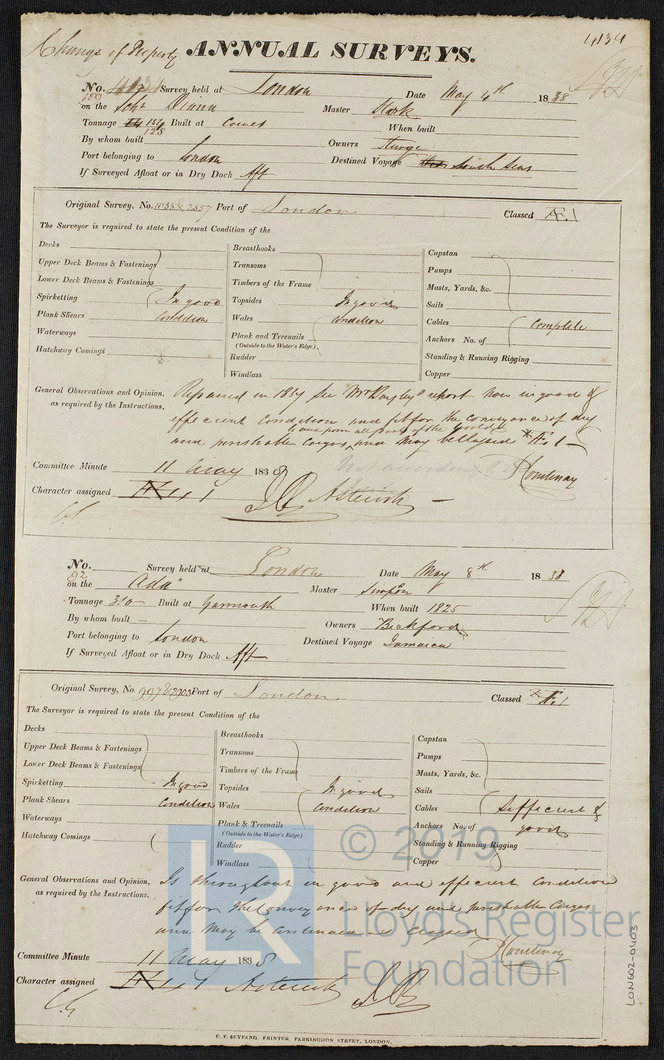 Change of Property ANNUAL SURVEYS. 4134
No. Survey held at London Date May 4th 1838
on the Schr Diana Master Stark
Tonnage 124 Built at Cowes When built
125
By whom built Owners Sturge
Port belonging to London Destined Voyage South Seas
If Surveyed Afloat or in Dry Dock Aft
Original Survey, No. Port of London. Classed Æ.1
The Surveyor is required to state the present Condition of the
Decks
Upper Deck Beams & Fastenings
Lower Deck Beams & Fastenings
Spirketting In good
Plank Shears Condition
Waterways
Hatchway Comings
Breasthooks
Transoms
Timbers of the Frame
Topsides In good
Wales Condition
Plank and Treenails
(Outside to the Water's Edge)
Rudder
Windlass
Capstan
Pumps
Masts, Yards, &c.
Sails
Cables Complete
Anchors No. of
Standing & Running Rigging
Copper
General Observations and Opinion, Repaired in 1834 See Mr report Now in good &
as required by the Instructions.
efficient Condition and fit for the Conveyance of dry
to and from all parts of the World
and perishable Cargos and May be Classed * Æ 1
Committee Minute 11 May 1838 Courtenay
Character assigned Æ 1 Asterisk
No. Survey held at London Date May 8th 1838
92
on the "Ada" Master Simpson
Tonnage 310 Built at Yarmouth When built 1825
By whom built Owners Beckford
Port belonging to London Destined Voyage Jamaica
If Surveyed Afloat or in Dry Dock Aft
Original Survey, No. Port of London. Classed * Æ.1
The Surveyor is required to state the present Condition of the
Decks
Upper Deck Beams & Fastenings
Lower Deck Beams & Fastenings
Spirketting In good
Plank Shears Condition
Waterways
Hatchway Comings
Breasthooks
Transoms
Timbers of the Frame
Topsides In good
Wales Condition
Plank & Treenails
(Outside to the Water's Edge)
Rudder
Windlass
Capstan
Pumps
Masts, Yards, &c.
Sails
Cables Sufficient &
Anchors No. of good
Standing & Running Rigging
Copper
General Observations and Opinion, Is throughout in good and efficient Condition
as required by the Instructions.
fit for the Conveyance of dry and perishable Cargos
and May be Continued as Classed
Committee Minute 11 May 1838 Courtenay
Character assigned Æ 1 Asterisk
C. F. SEYFANG, PRINTER, FARRINGDON STREET, LONDON.
LR © 2019
Lloyd's Register
Foundation
LON602-0403